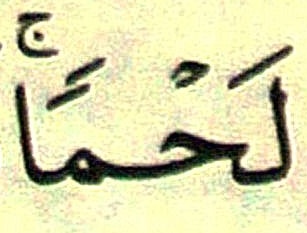 لَحْمًاۚ